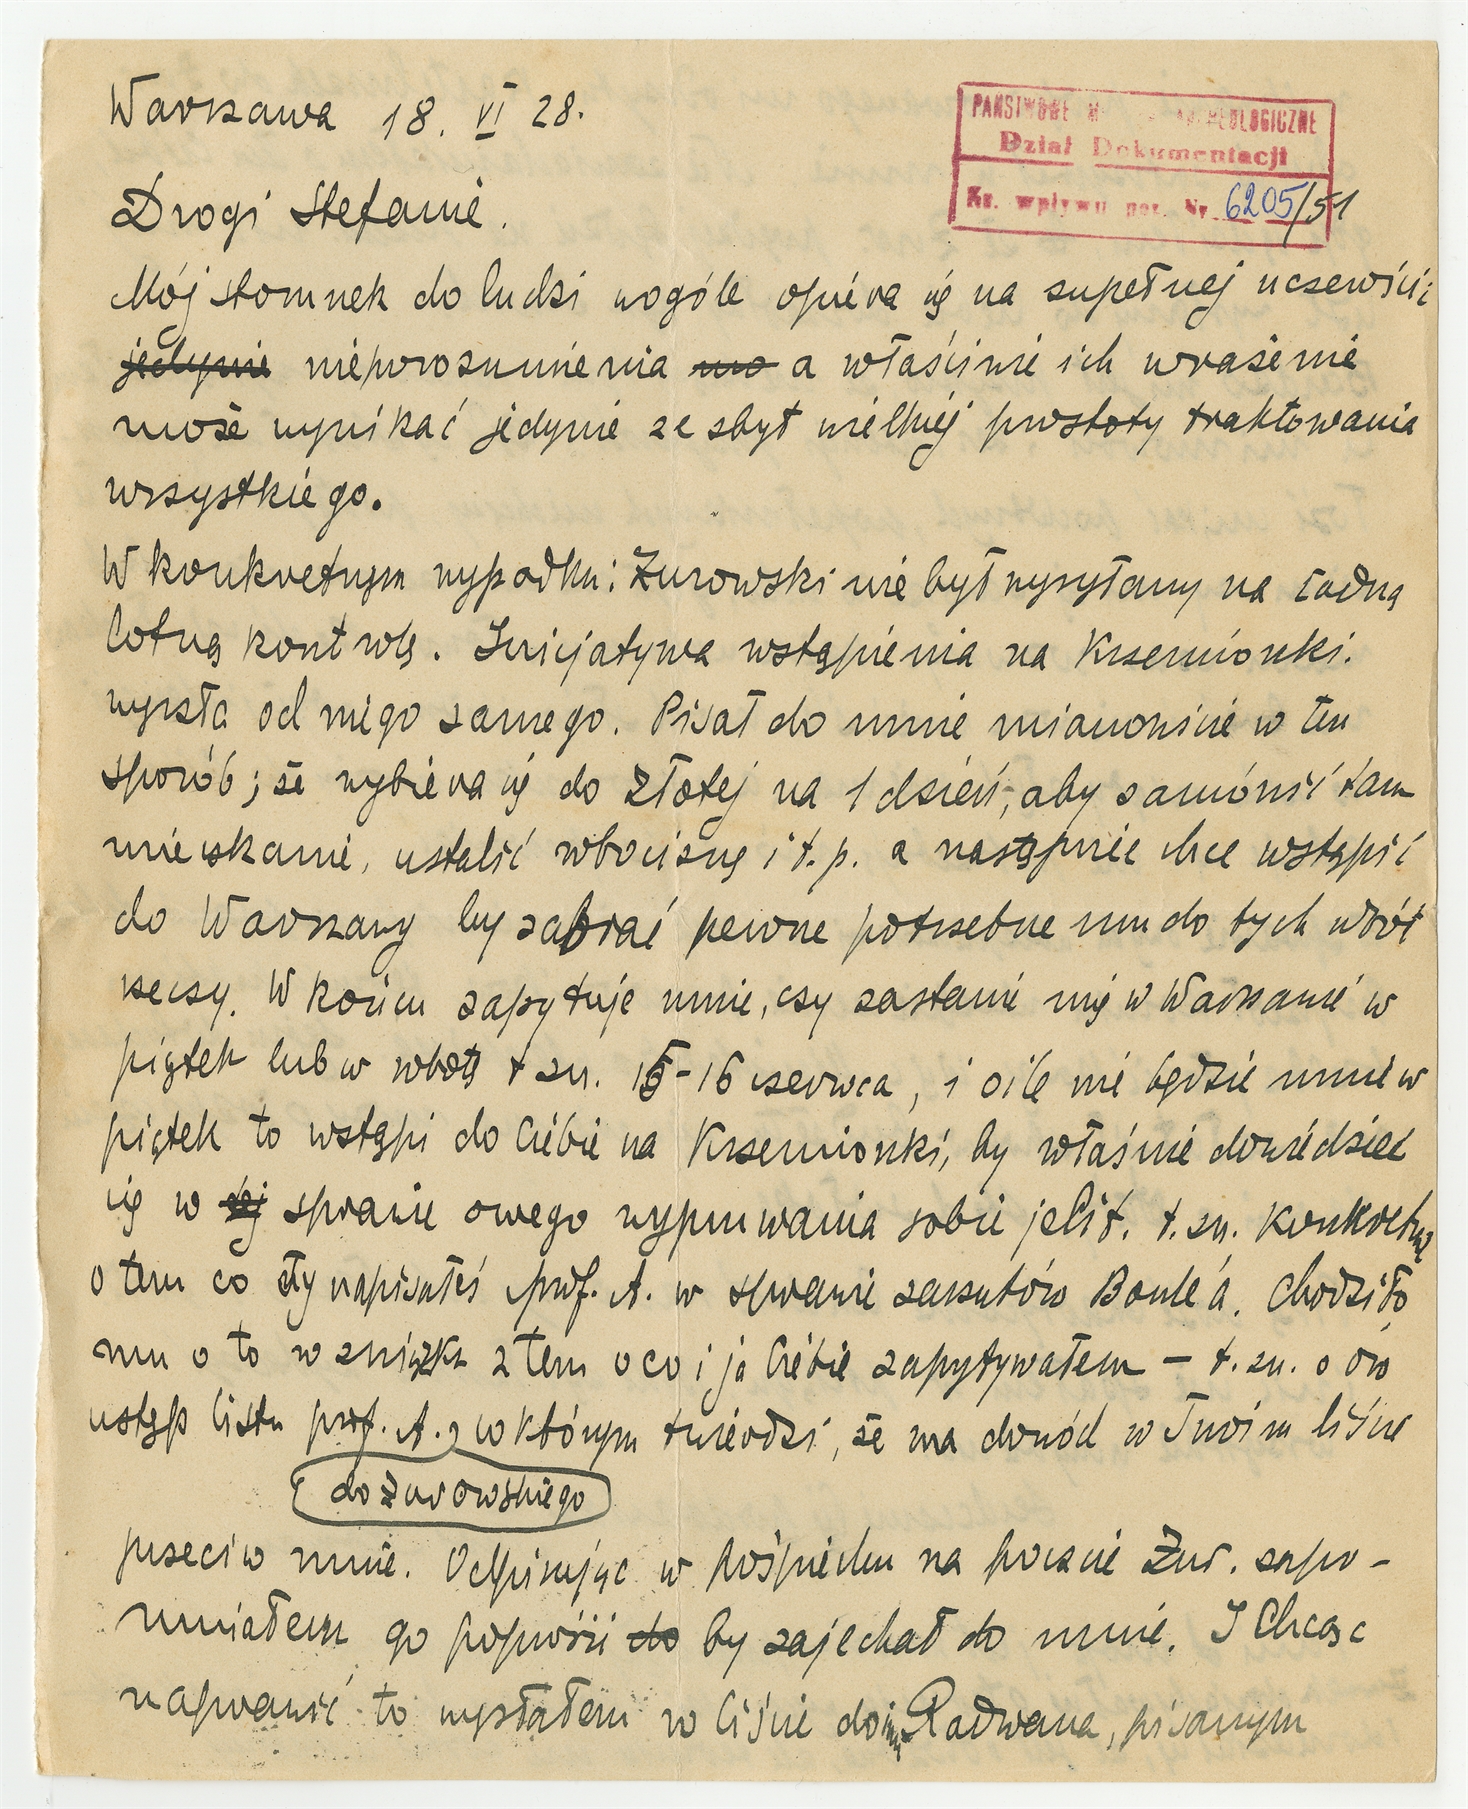 Warszawa 18. VI 28.
PAŃSTWOWE M ARCHEOLOGICZNE
Dział Dokumentacji
Ks. wpływu poz. Nr 6205/51
Drogi Stefanie.
Mój stosunek do ludzi wogóle opiera się na zupełnej uczciwości
jedynie nieporozumienia a właściwie ich wrażenie
może wynikać jedynie ze zbyt wielkiej prostoty traktowania
wszystkiego.
W konkretnym wypadku: Żurowski nie był wysyłany na żadną
lotną kontrolę. Inicjatywa wstąpienia na Krzemionki.
wyszła od niego samego. Pisał do mnie mianowicie w ten
sposób; że wybiera się do Złotej na 1 dzień, aby zamówić tam
mieszkanie, ustalić robociznę i t. p. a następnie chce wstąpić
do Warszawy by zabrać pewne potrzebne mu do tych robót
rzeczy. W końcu zapytuje mnie, czy zastanie mię w Warszawie w
piątek lub w sobotę t zn. 15-16 czerwca, i o ile nie będzie mnie w
piątek to wstąpi do Ciebie na Krzemionki, by właśnie dowiedzieć
się w tej sprawie owego wypruwania sobie jelit. t. zn. konkretnie
o tem co ty napisałeś prof. A. w sprawie zarzutów Boule'a. Chodziło
mu o to w związku z tem o co i ja Ciebie zapytywałem – t. zn. o ów
ustęp listu prof. A. w którym twierdzi, że ma dowód w Twoim liście
do Żurowskiego
przeciw mnie. Odpisując w pośpiechu na poczcie Żur. zapo-
mniałem go poprosić do by zajechał do mnie. I Chcąc
naprawić to wysłałem w liście do Radwana, pisanym